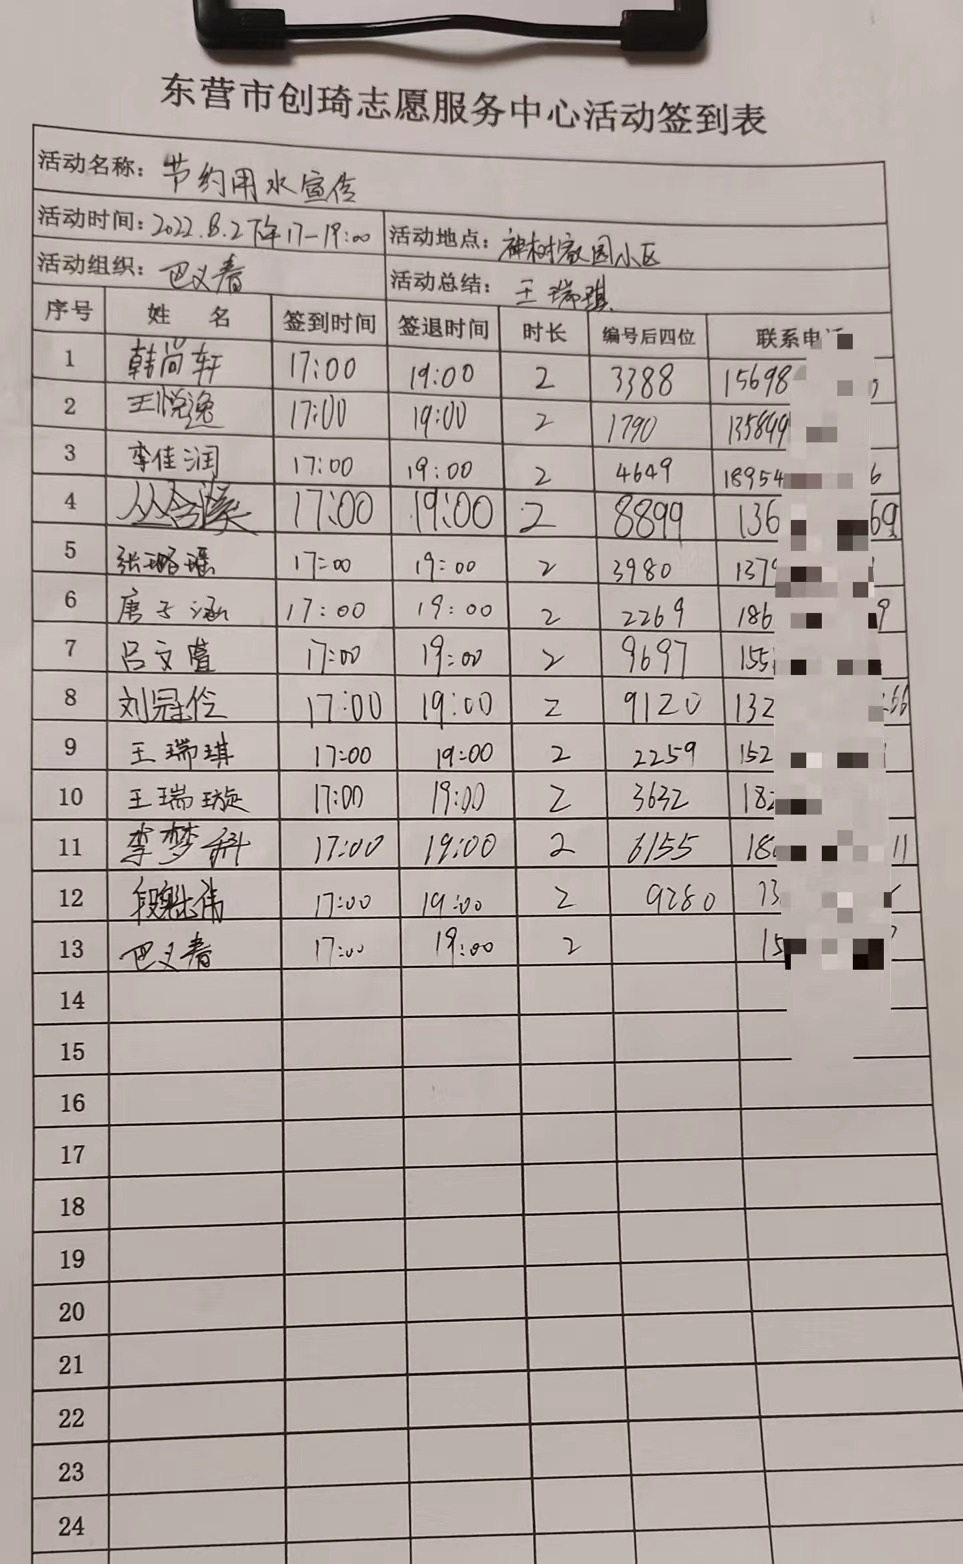 东营市创琦志愿服务中心活动签到表
活动名称: 节约用水宣传
活动时间: 2022.8.2下午17-19:00 活动地点: 神树家园小区
活动组织: 巴义春 活动总结: 王瑞琪
序号 姓名 签到时间 签退时间 时长 编号后四位 联系电
1 韩尚轩 17:00 19:00 2 3388 15698
2 王悦逸 17:00 19:00 2 1790 135899
3 李佳润 17:00 19:00 2 4649 18954 6
4 丛含溪 17:00 19:00 2 8899 136 69
5 张璐瑶 17:00 19:00 2 3980 137
6 唐子涵 17:00 19:00 2 2269 186 9
7 吕文萱 17:00 19:00 2 9697 155
8 刘冠伶 17:00 19:00 2 9120 132 66
9 王瑞琪 17:00 19:00 2 2259 152
10 王瑞璇 17:00 19:00 2 3632 182
11 李梦科 17:00 19:00 2 6155 18 11
12 段 伟 17:00 19:00 2 9280 13
13 巴义春 17:00 19:00 2 15
14
15
16
17
18
19
20
21
22
23
24